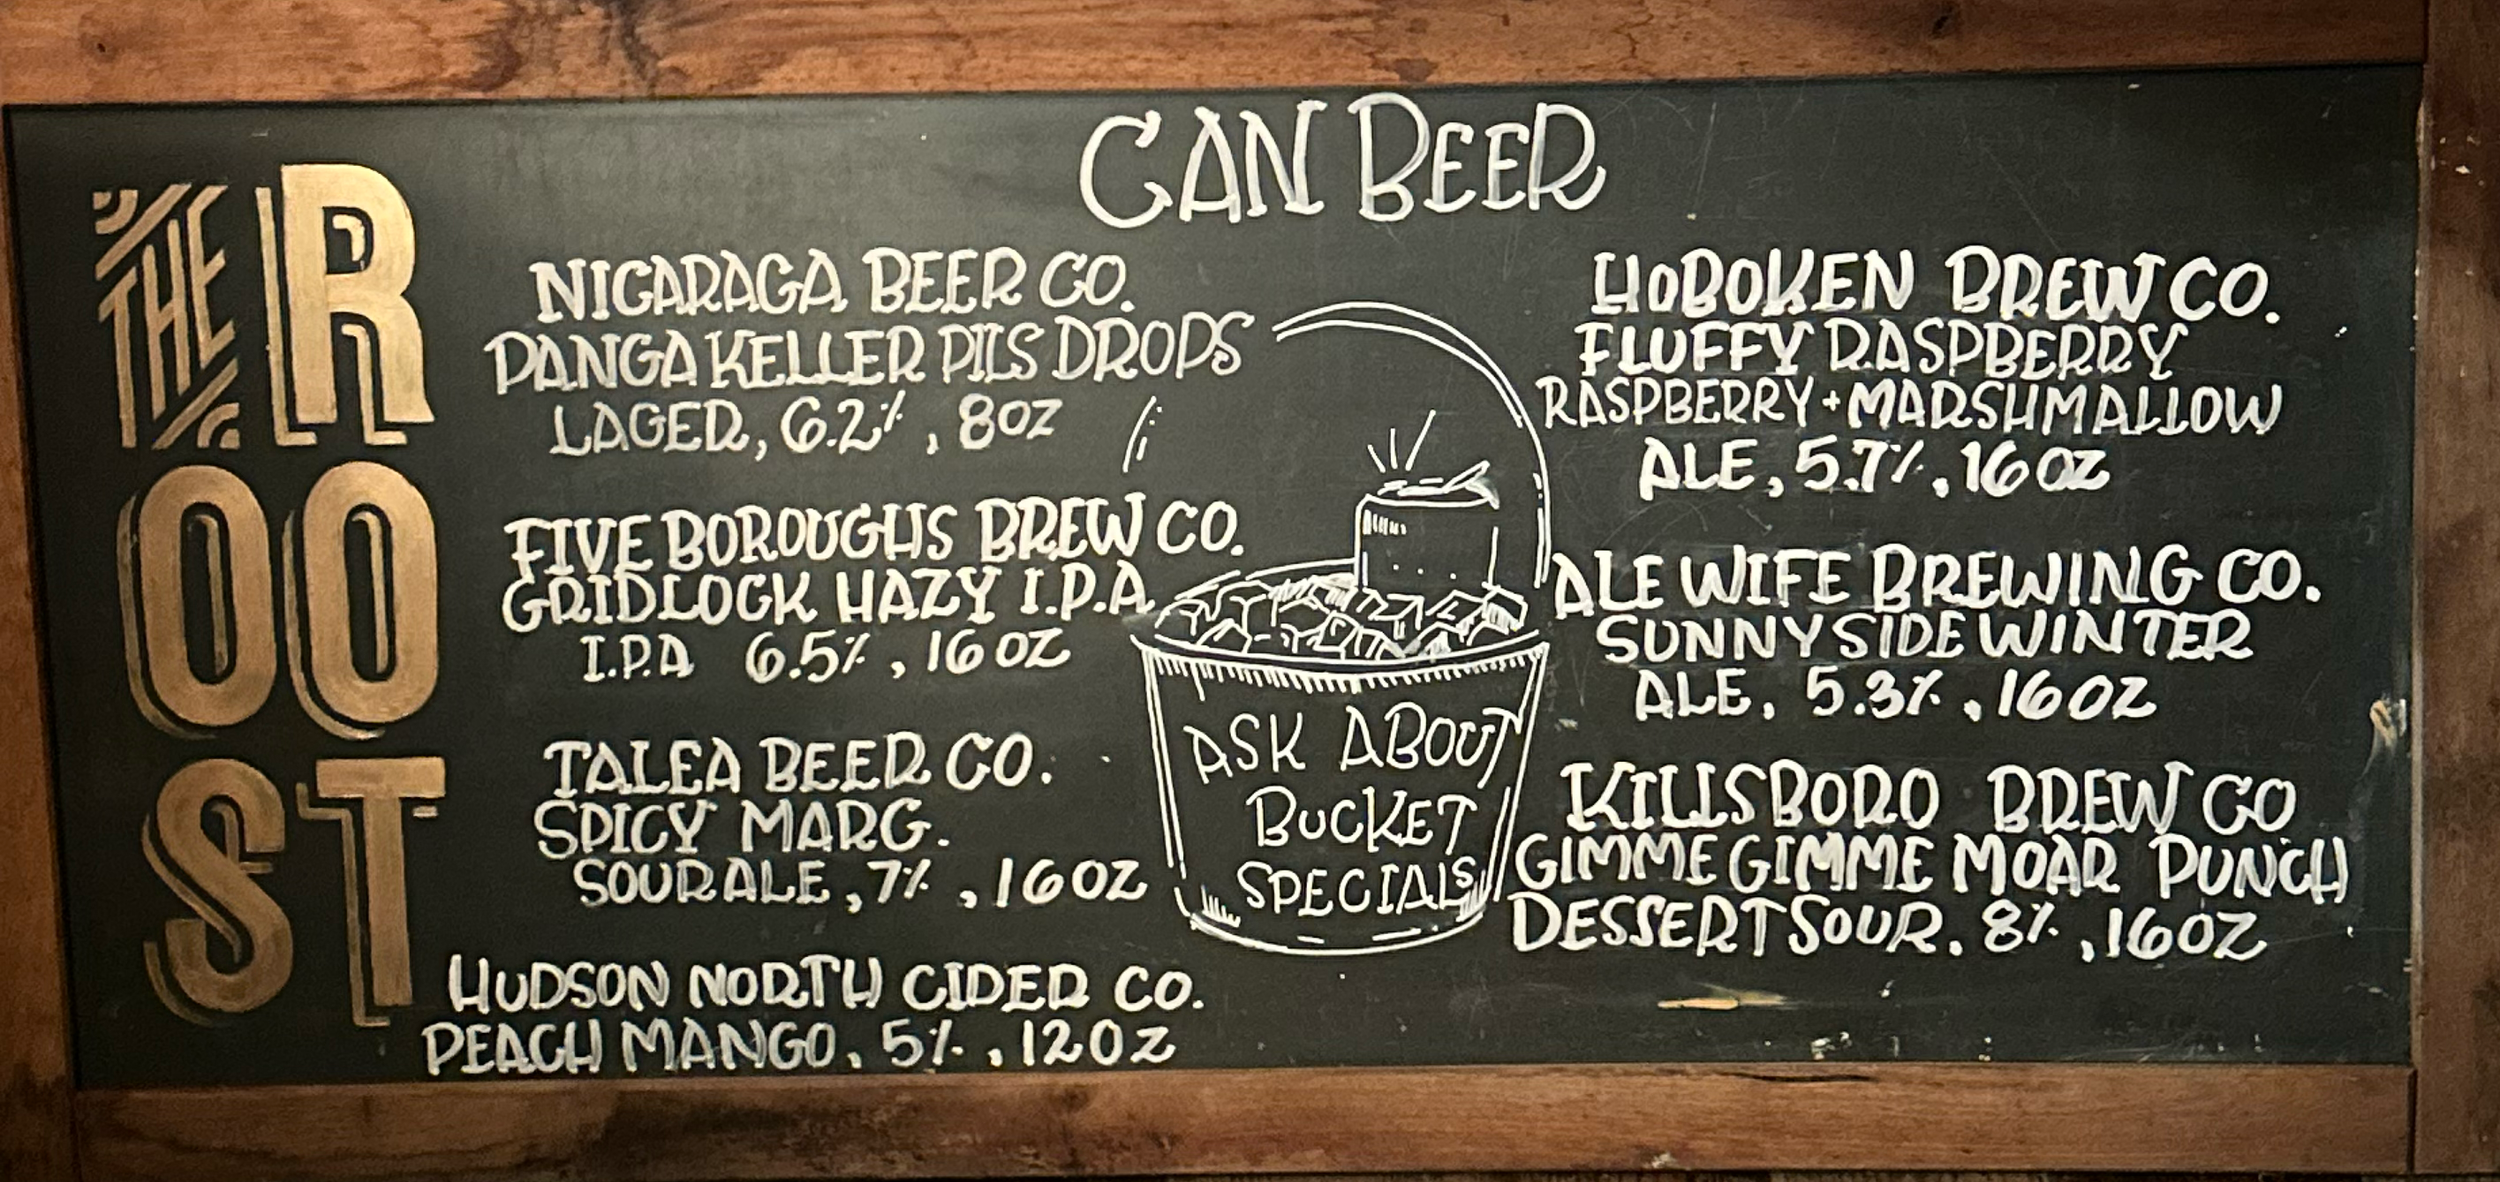 THE ROOST
CAN BEER
NICARAGA BEER CO.
PANGA KELLER PILS DROPS
LAGER, 6.2%, 8oz
FIVE BOROUGHS BREW CO.
GRIDLOCK HAZY I.P.A.
I.P.A 6.5%, 16 oz
TALEA BEER CO.
SPICY MARG.
SOUR ALE, 7%, 16 oz
HUDSON NORTH CIDER CO.
PEACH MANGO, 5%, 12 oz
ASK ABOUT
BUCKET
SPECIALS
HOBOKEN BREW CO.
FLUFFY RASPBERRY
RASPBERRY + MARSHMALLOW
ALE, 5.7%, 16 oz
ALE WIFE BREWING CO.
SUNNYSIDE WINTER
ALE, 5.3%, 16 oz
KILLSBORO BREW CO
GIMME GIMME MOAR PUNCH
DESSERT SOUR. 8%, 16 oz